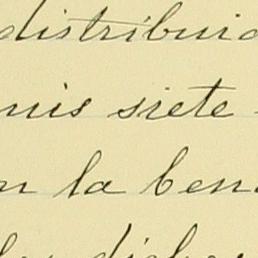 distribuid
mis siete
la ben